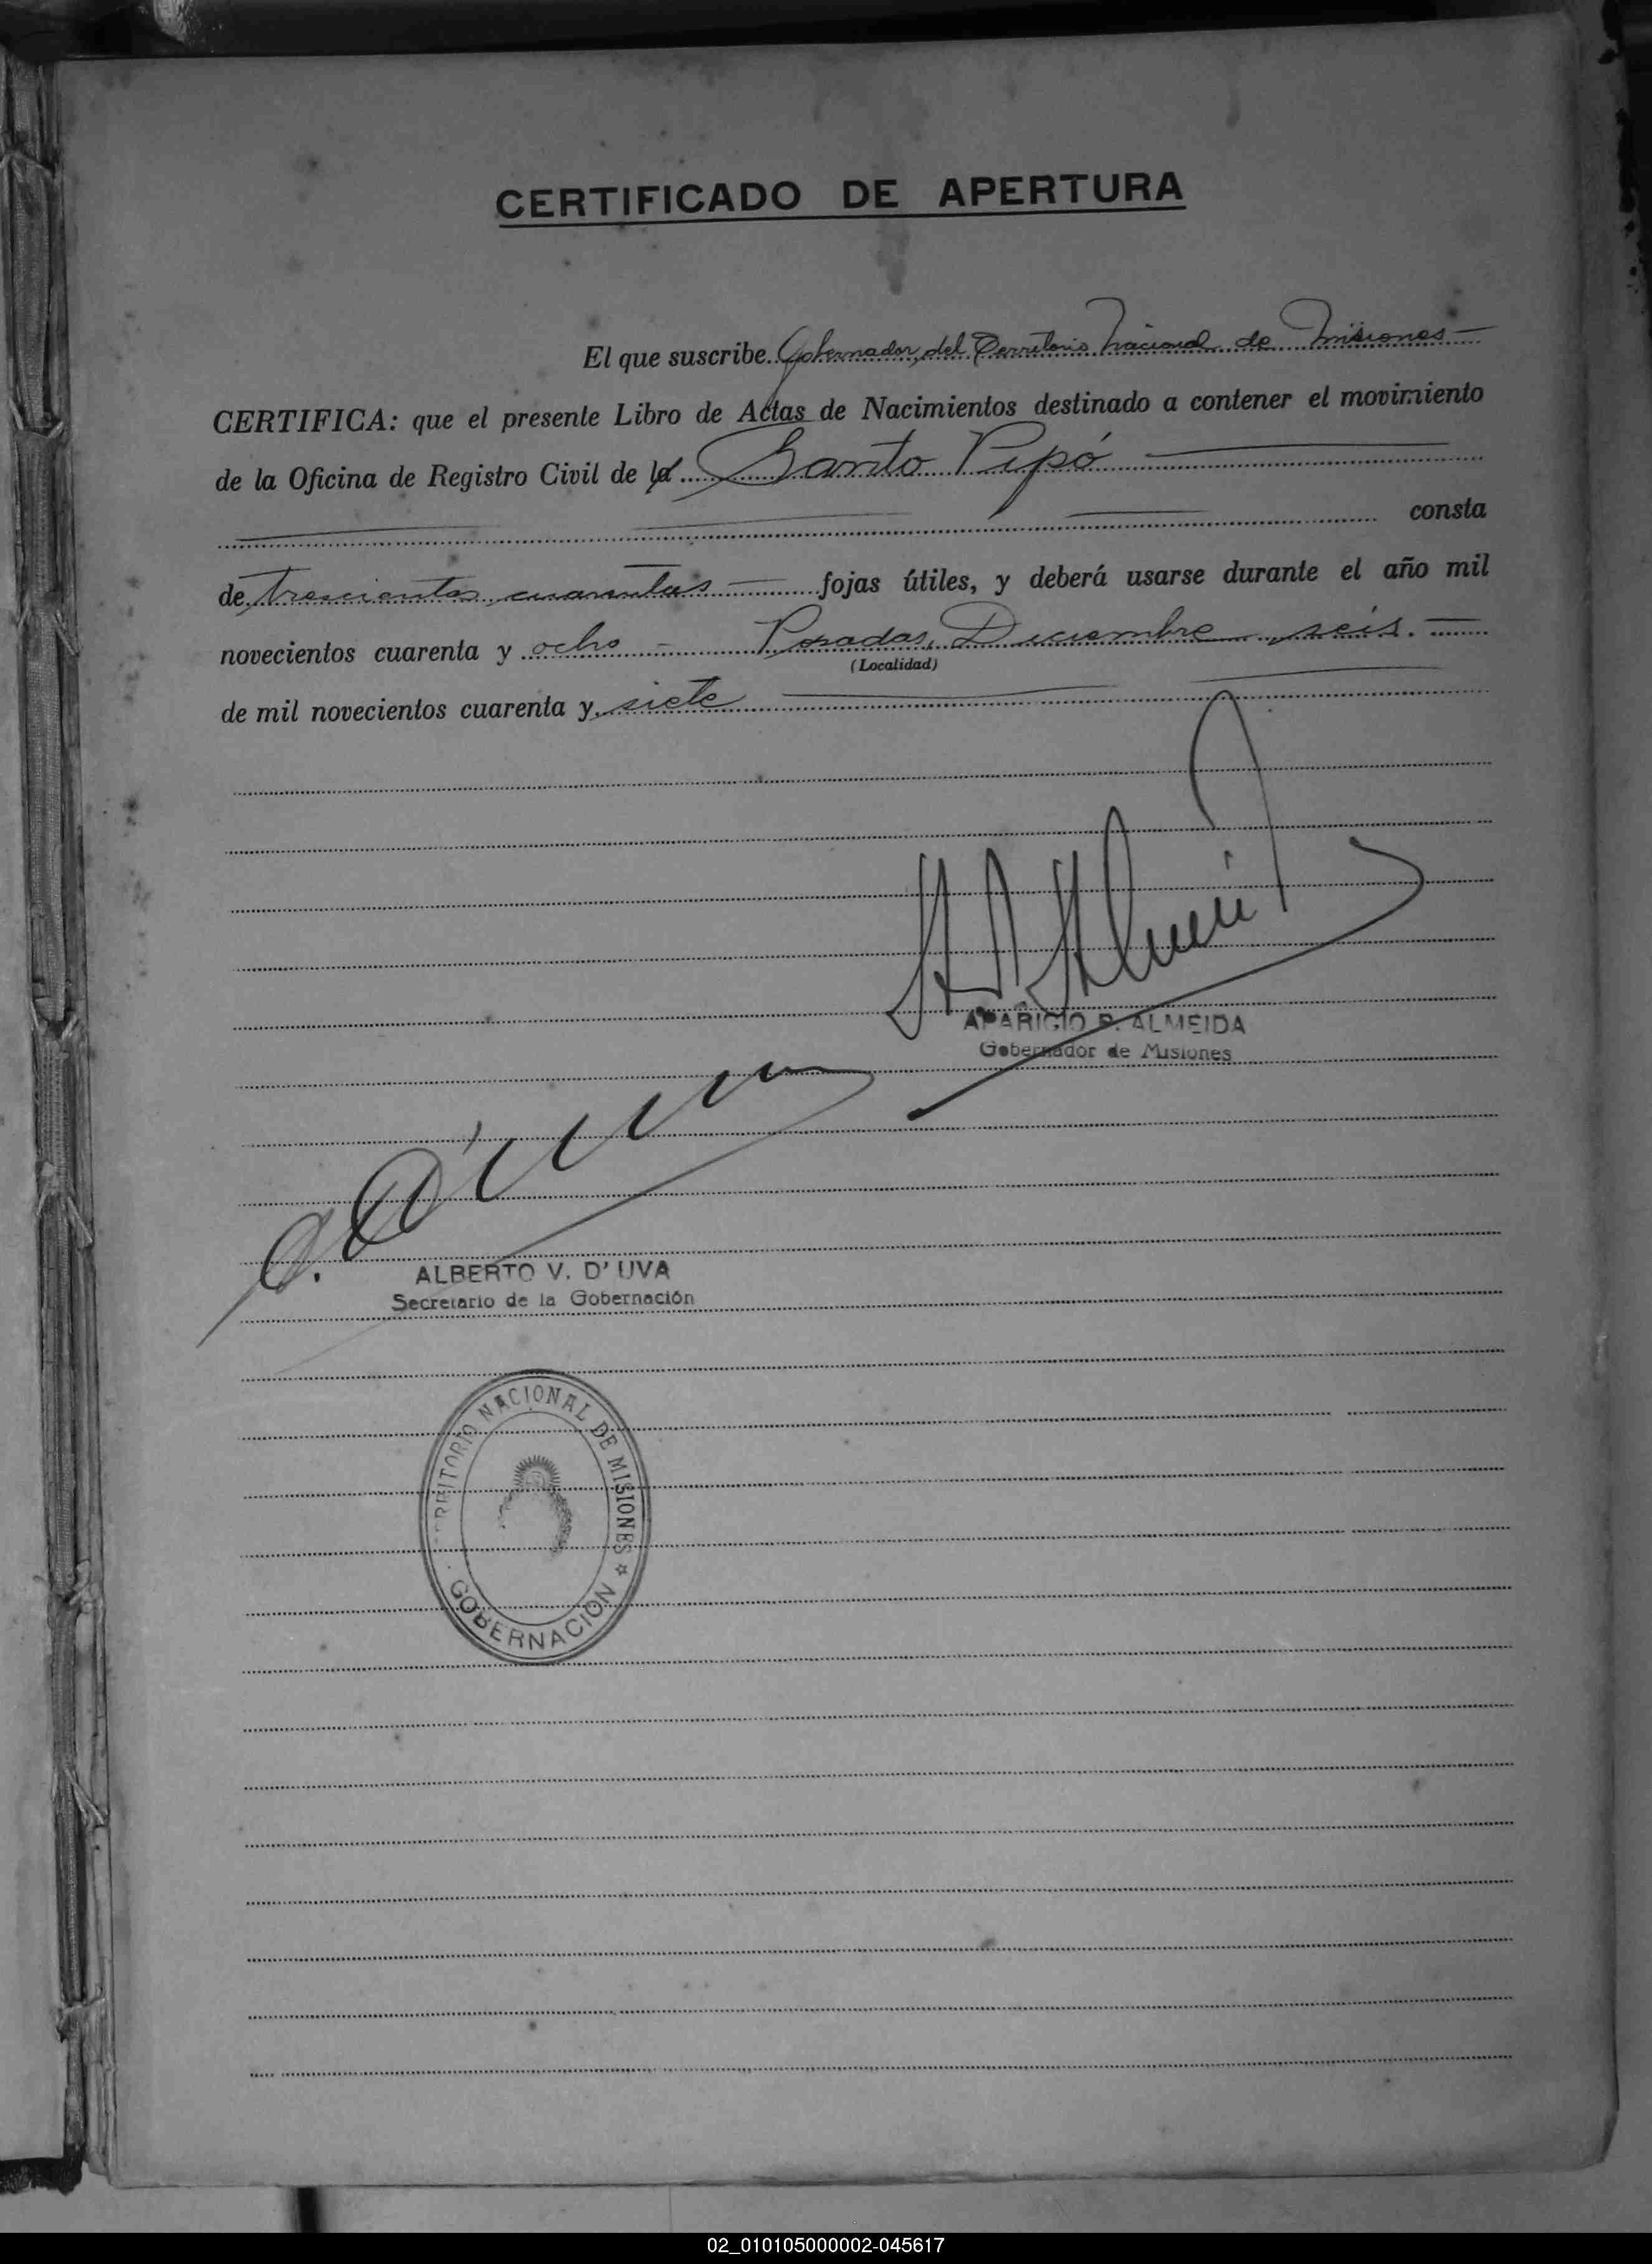 CERTIFICADO DE APERTURA
El que suscribe Gobernador del Territorio Nacional de Misiones
CERTIFICA: que el presente Libro de Actas de Nacimientos destinado a contener el movimiento
de la Oficina de Registro Civil de la Santo Pipó
consta
de trescientas cuarentas fojas útiles, y deberá usarse durante el año mil
novecientos cuarenta y ocho - Posadas, Diciembre seis.
(Localidad)
de mil novecientos cuarenta y siete
APARICIO P. ALMEIDA
Gobernador de Misiones
ALBERTO V. D' UVA
Secretario de la Gobernación
TERRITORIO NACIONAL DE MISIONES
GOBERNACION
02_010105000002-045617